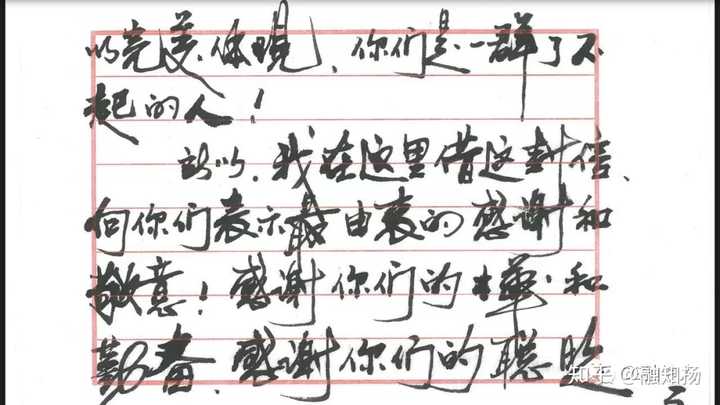 以完美体现，你们是一群了不
起的人！
所以，我在这里借这封信、
向你们表示最由衷的感谢和
敬意！感谢你们的和
勤奋，感谢你们的聪
知乎 @融知杨